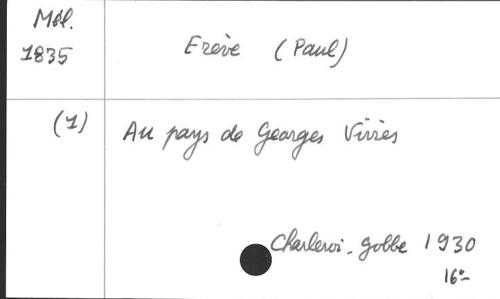 Mél.
1835
Erève (Paul)
(1)
Au pays de Georges Virrès
Charleroi - gobbe 1930
16°